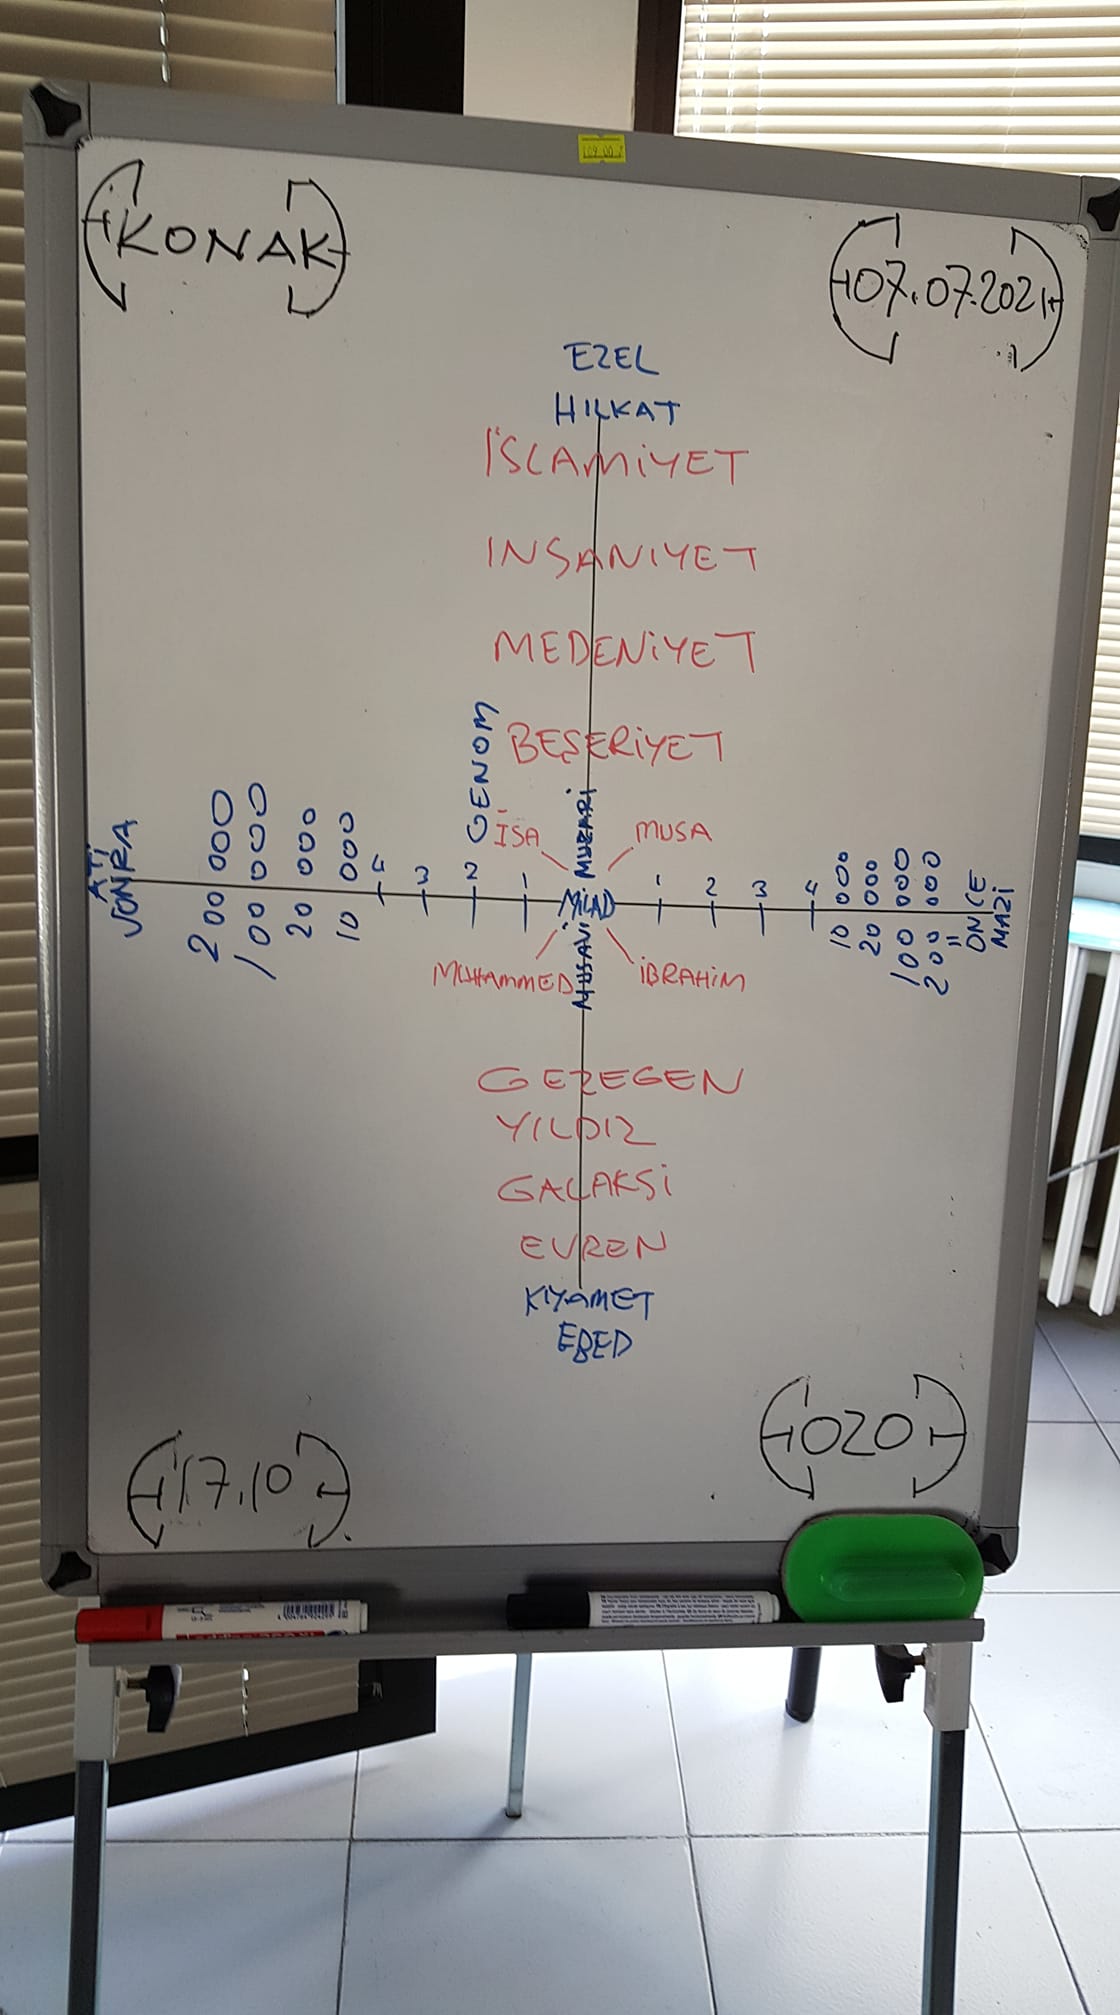 KONAK
07.07.2021
EZEL
HILKAT
İSLAMİYET
INSANIYET
MEDENİYET
GENOM
BEŞERİYET
MUZARİ
İSA
MUSA
ATİ
SONRA
200 000
100 000
20 000
10 000
4 3 2 1
MİLAD
1 2 3 4
10 000
20 000
100 000
200 000
ÖNCE
MAZİ
MUHAMMED
MUSAVİ
İBRAHİM
GEZEGEN
YILDIZ
GALAKSİ
EVREN
KIYAMET
EBED
17.10
020